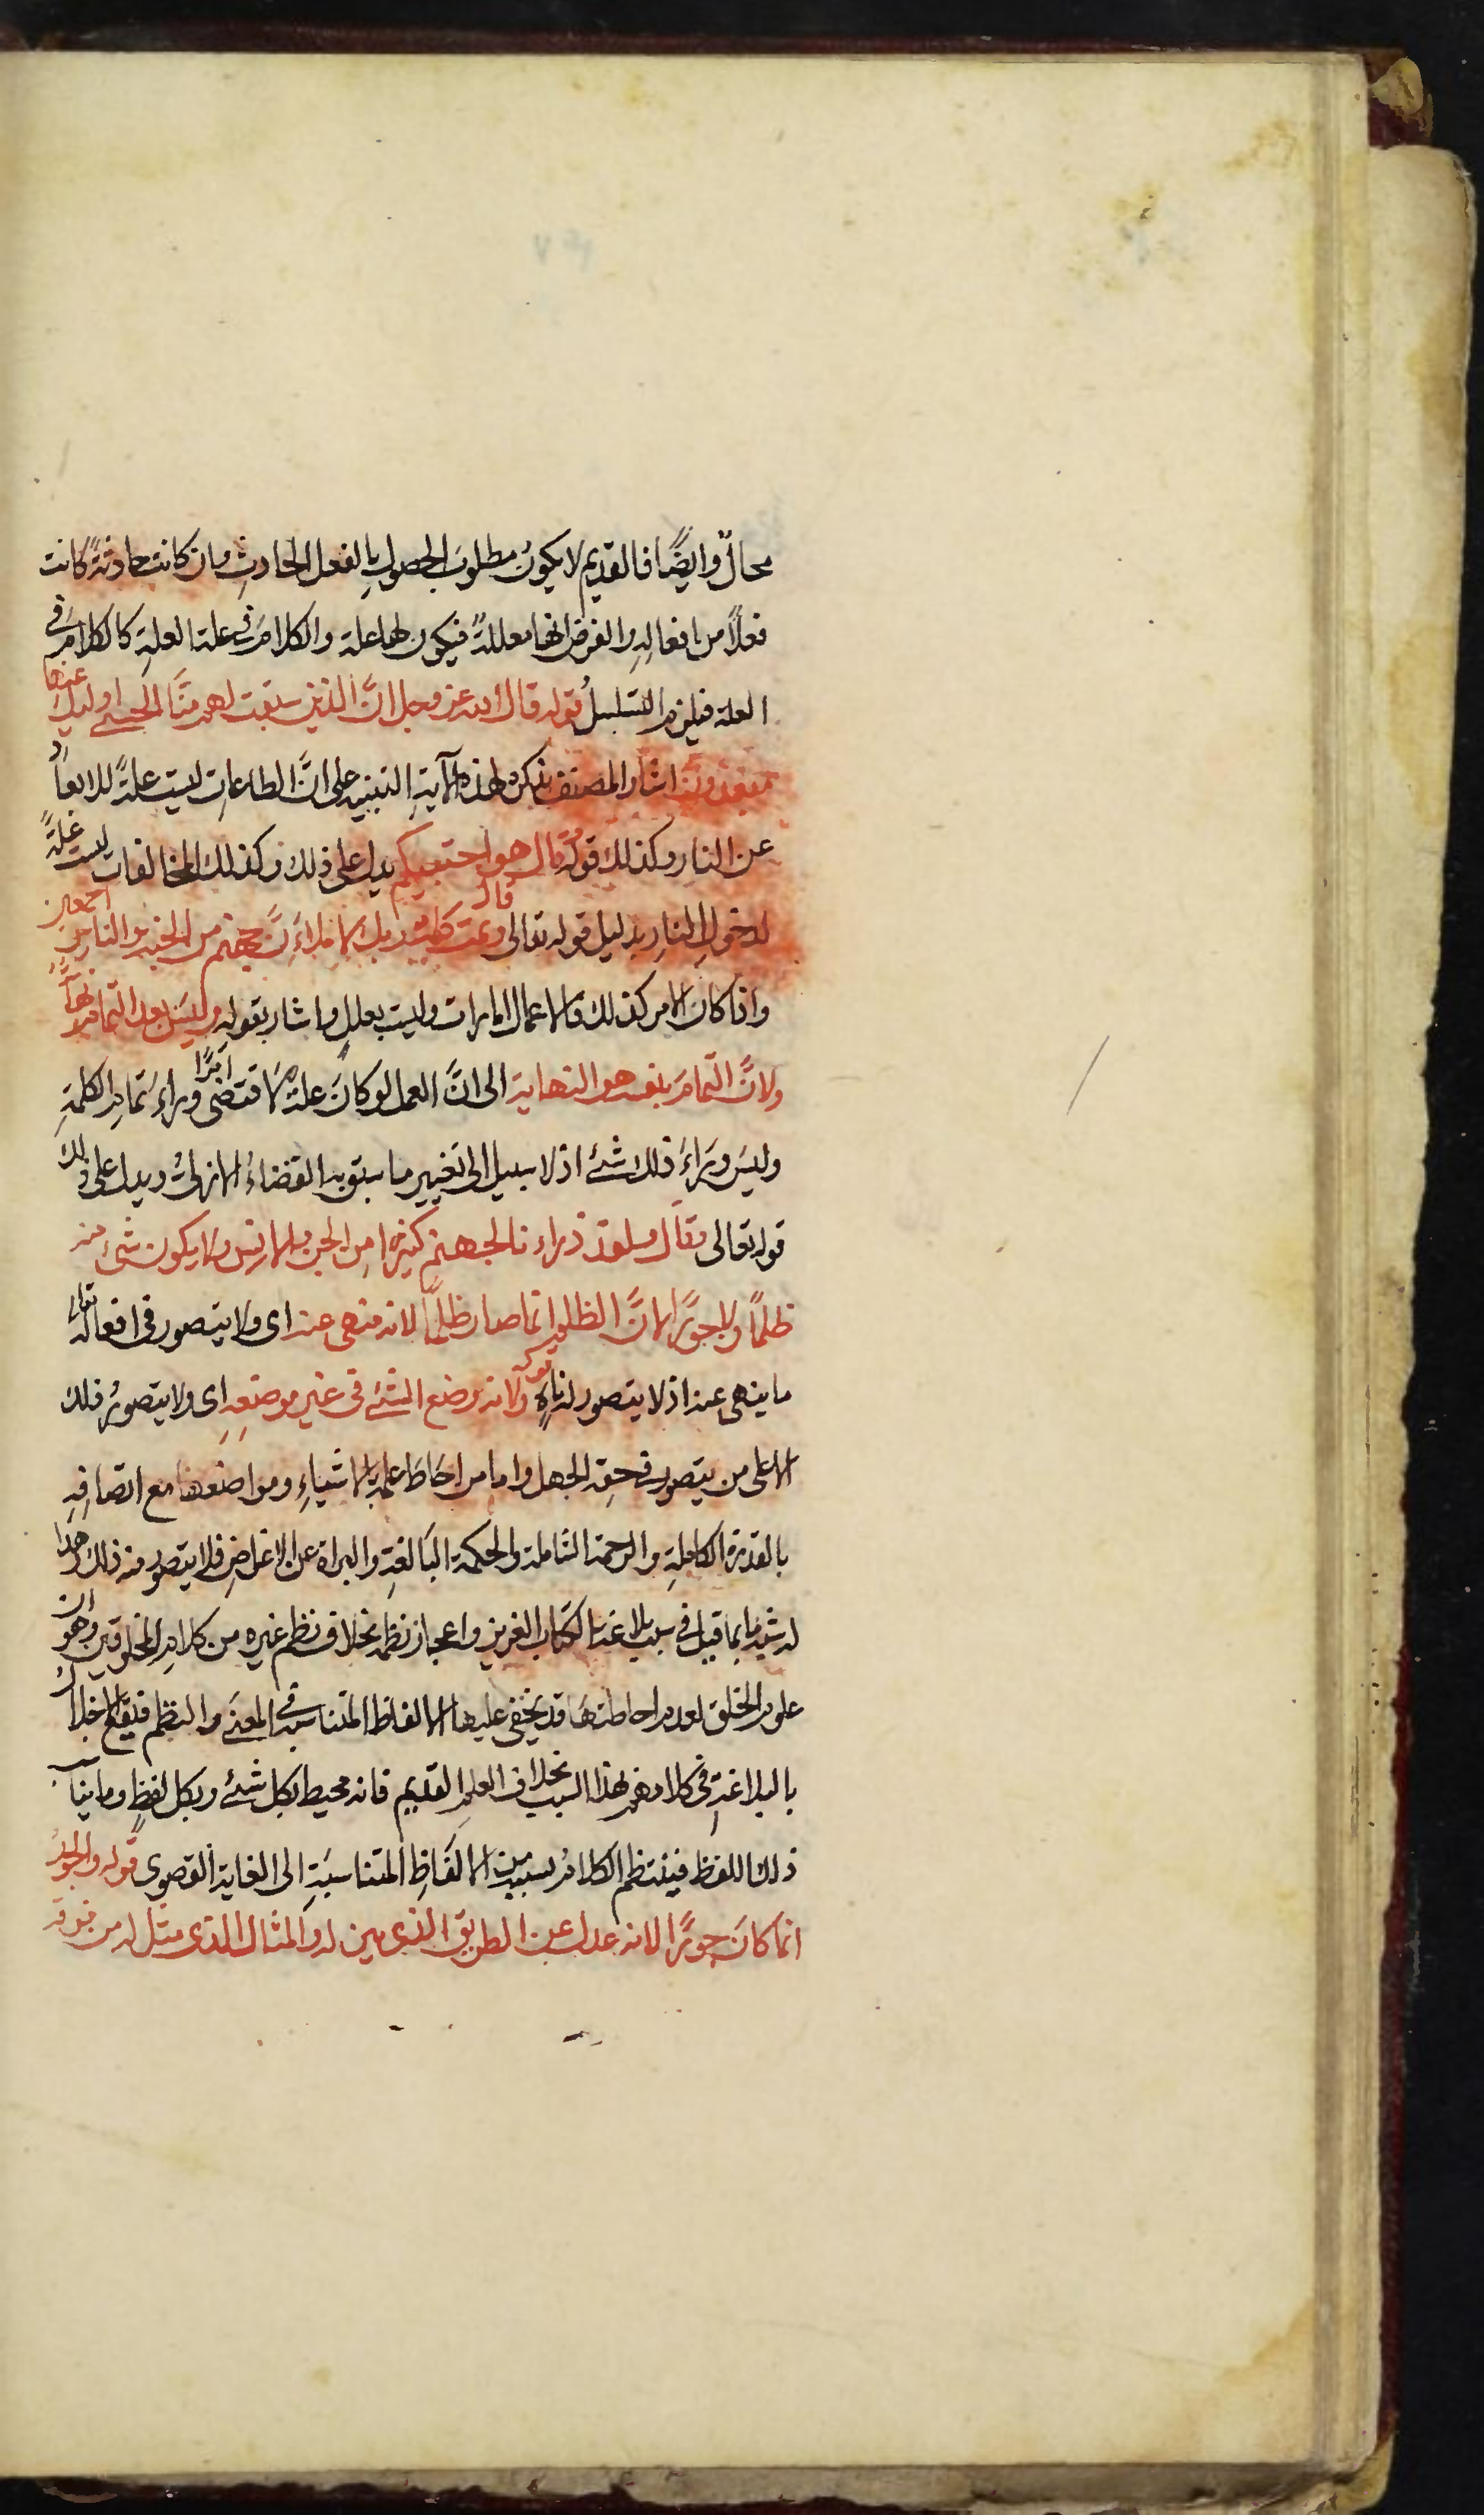 محالٌ وايضًا فالقديم لا يكونُ مطلوبَ الحصولِ بالفعل الحادثِ وان كانت حادثةً كانت
فعلًا من افعالِهِ والفرض انها معللةً فيكون لها علة والكلامُ في علة العلةِ كالكلامِ في
العلة فيلزم التسلسلُ قوله قال الله عز وجل انَّ الذين سبقت لهم منَّا الحسنى اوليك عنها
مبعدون اشار المصنف بذكره لهذه الآيةِ التنبيه على انَّ الطاعاتِ ليست علةً للابعاد
عن النارِ وكذلك قوله قال هو اجتبيكم يدل على ذلك وكذلك المخالفات ليست علةً
لدخولِ النارِ بدليل قوله تعالى قال وتمت كلمة ربك لاملاءنَّ جهنم من الجنة والناس اجمعين
واذا كان الامر كذلك فالاعمال امارات وليست بعللٍ واشار بقوله وليسَ بعد التمام نهايةٌ
ولانَّ التمامَ بنفسه هو النهاية الى انَّ العمل لو كانَ علةً لاقتضى اثرًا وراءَ تمامِ الكلمةِ
وليسَ وراءَ ذلك شئ اذ لا سبيل الى تغيير ما سبق به القضاءُ الازليُ ويدل على ذلك
قوله تعالى وقال ولقد ذراءنا لجهنم كثيرا من الجن والانس ولا يكون شئ منه
ظلمًا ولا جورًا لانَّ الظلم انما صار ظلمًا لانه منهى عنه اى ولا يتصور فى افعاله تعالى
ما ينهى عنه اذ لا يتصور له ناهٍ قوله ولانه وضع الشئ فى غيرِ موضعِهِ اى ولا يتصورُ ذلك
الا على من يتصور فى حقِهِ الجهل واما من احَاطَ علمه بالاشياءِ ومواضعها مع اتصافِهِ
بالقدرة الكاملةِ والرحمة الشاملة والحكمة البالغةِ والبراة عن الاغراضِ فلا يتصور منه ذلك وهذا
له شبه بما قيل فى سبب بلاغة الكتاب العزيز واعجاز نظمه بخلاف نظم غيره من كلامِ المخلوقين وهو ان
علوم الخلق لعدم احاطتها قد يخفى عليها الالفاظ المتناسبة فى المعنى والنظم فيقع الاخلالُ
بالبلاغةِ فى كلامهم لهذا السبب بخلاف العلمِ القديم فانه محيط بكل شئ وبكل لفظٍ وما يناسب
ذلك اللفظ فينتظم الكلامُ بسببه من الالفَاظِ المتناسبَةِ الى الغاية القصوى قوله والجورُ
انما كانَ جورًا لانه عدل عن الطريق الذى بين له والمثال الذى مثل له من فوقه